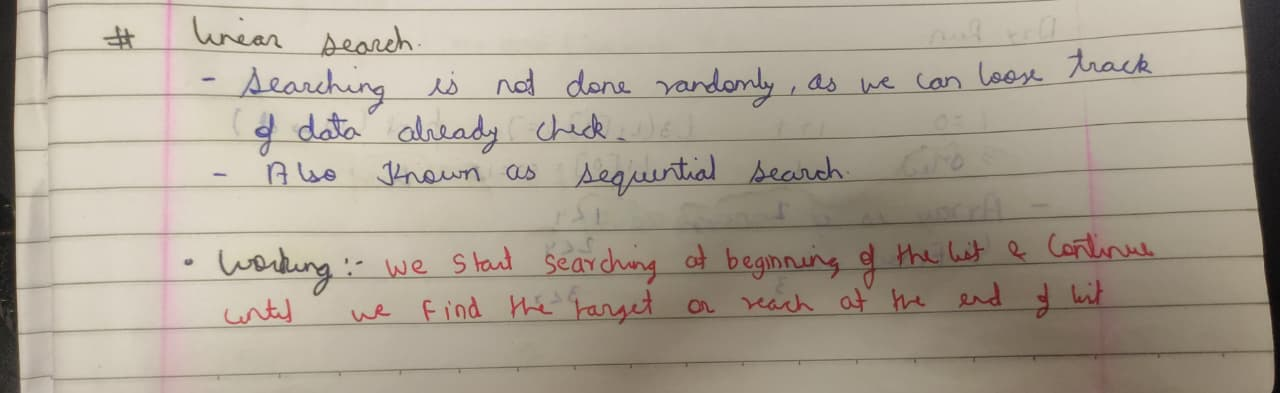 # linear search.
- Searching is not done randomly, as we can loose track
of data already check.
- Also Known as sequential search.
• Working :- we start searching at beginning of the list & continue
until we find the target or reach at the end of list